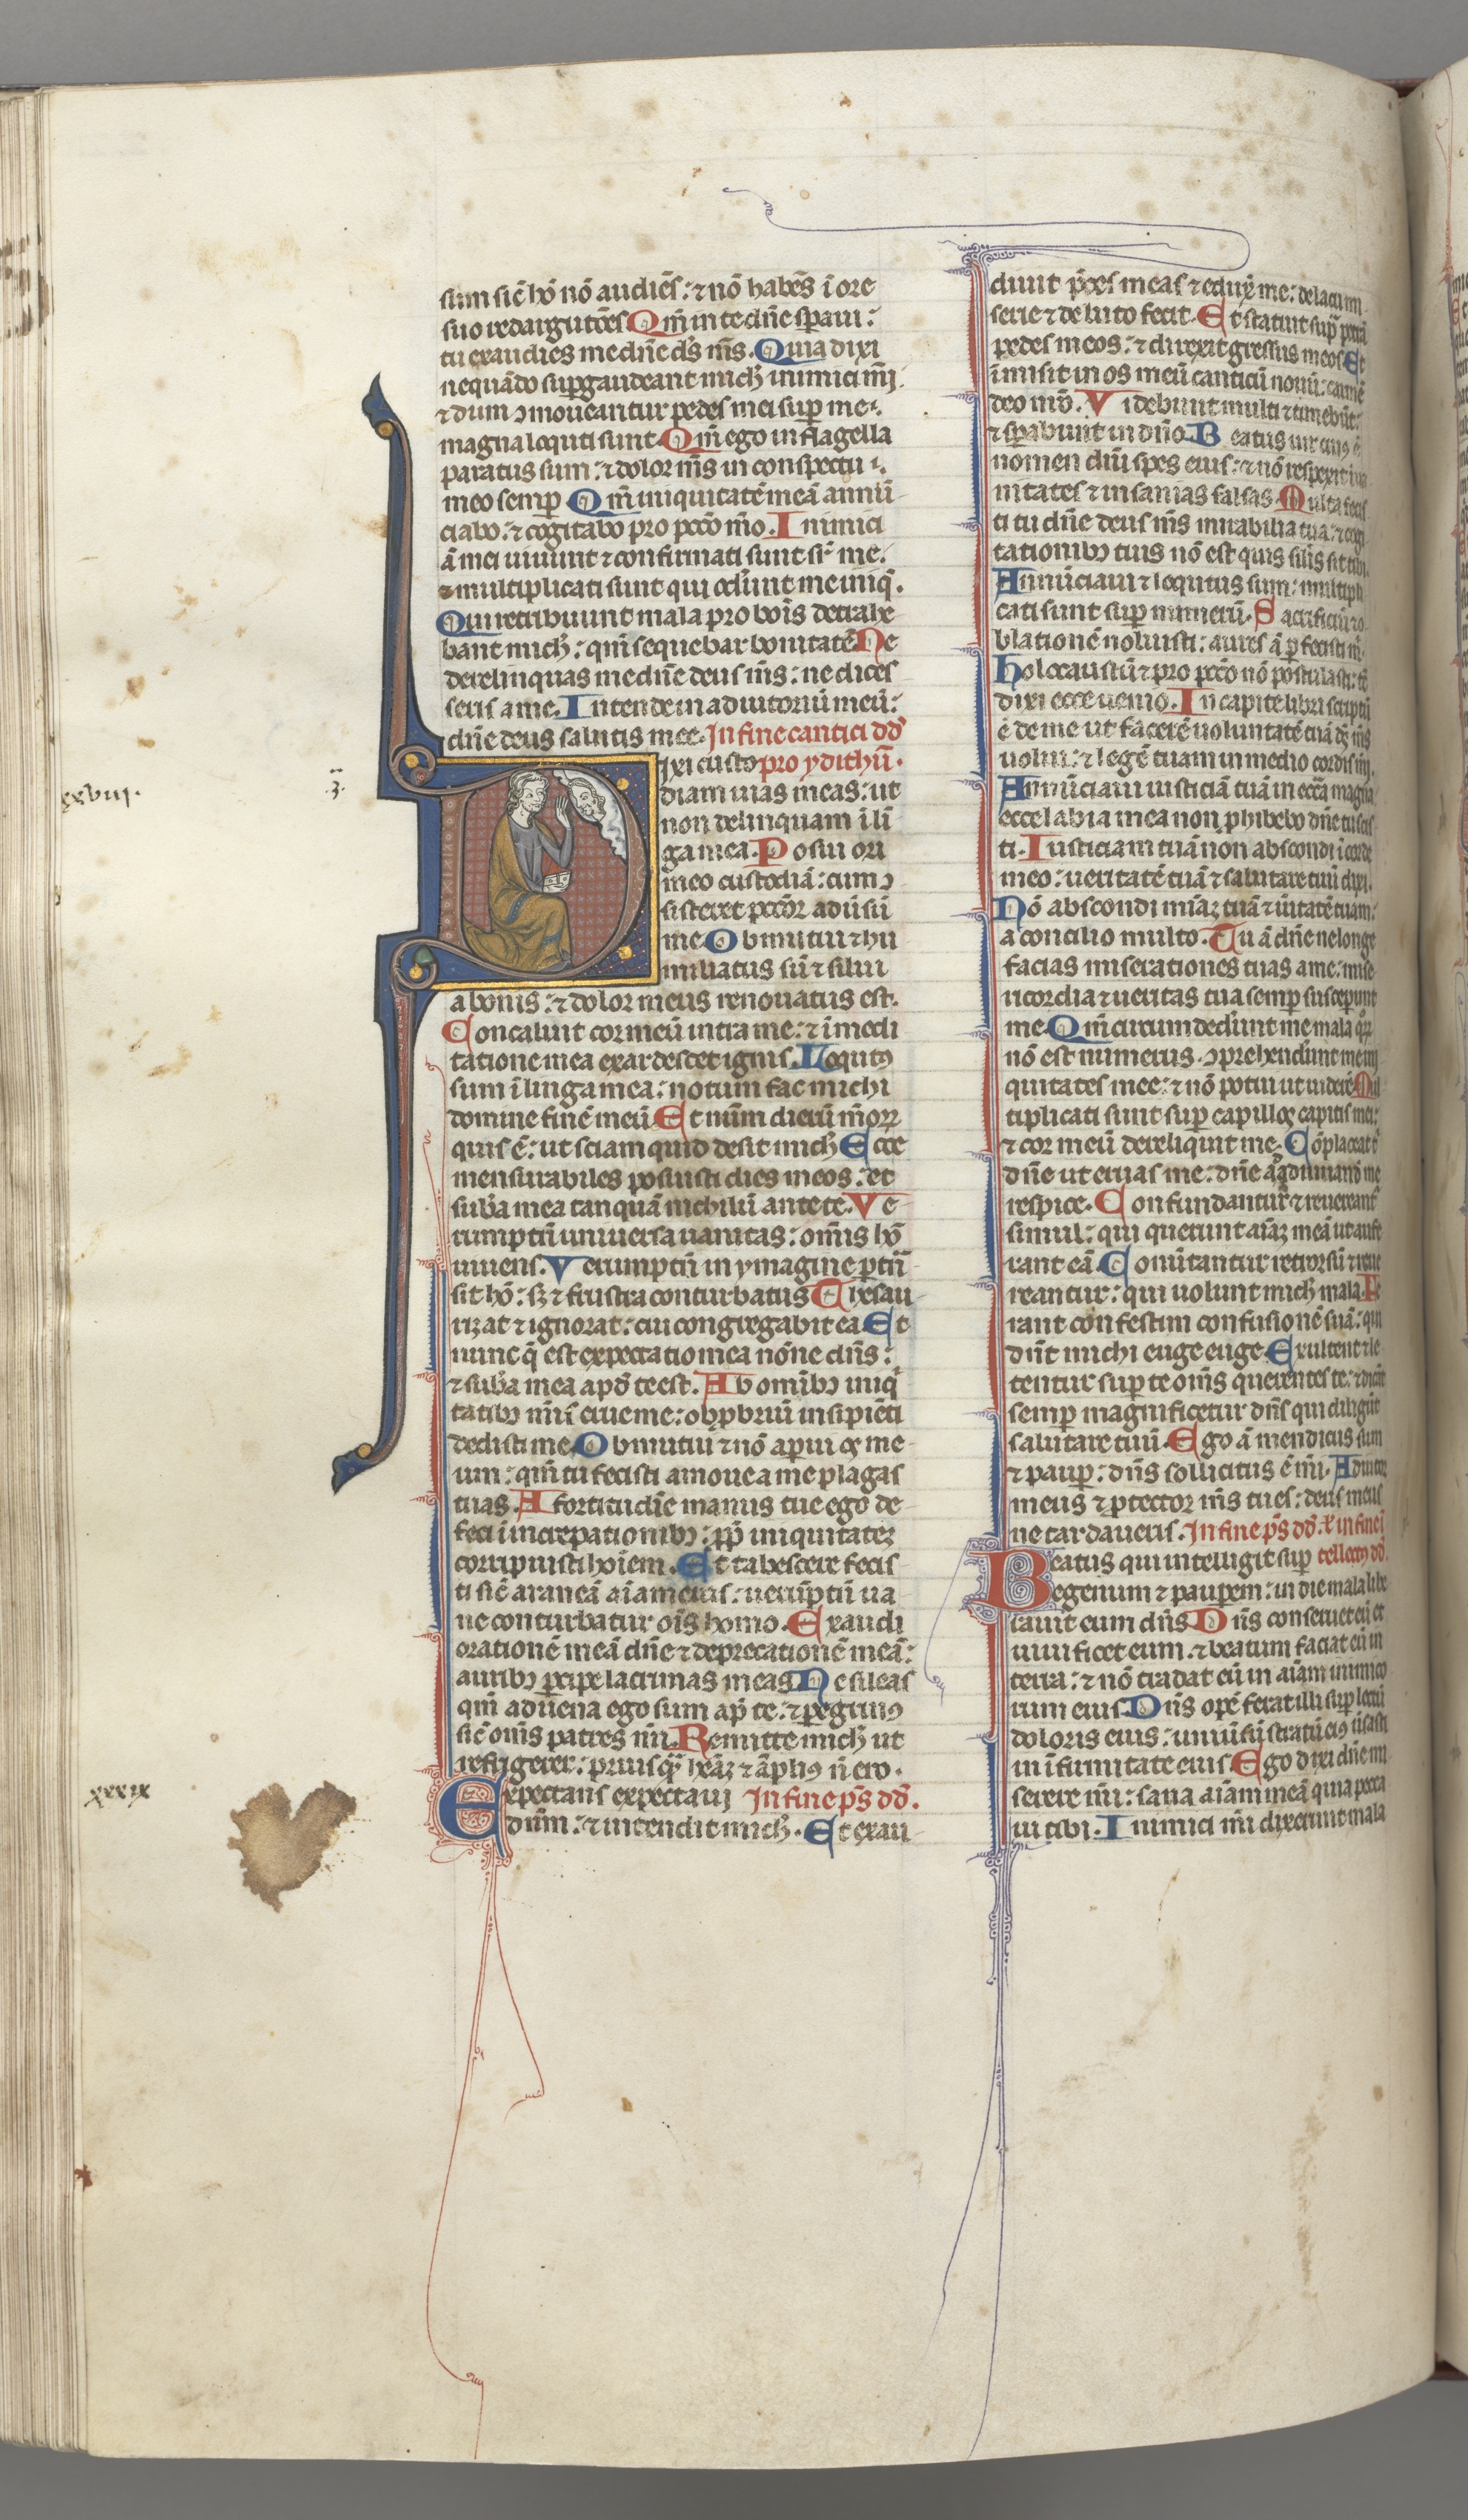 sum sic̄ hō nō audiēs: ⁊ nō habēs ī ore
suo redargutōes Qm̄ in te dn̄e sperauı:
tu exaudies me dn̄e ds̄ ms̄. Quia dixi
nequādo suꝑgaudeant mich inimici mī
⁊ dum ↄmoueantur pedes mei suꝑ me
magna locuti sunt. Qm̄ ego in flagella
paratus sum: ⁊ dolor ms̄ in conspectu
meo semꝑ Qm̄ iniquitatē meā annū
ciabo: ⁊ cogitabo pro pccō mō. Inimici
ā mei uiuunt ⁊ confirmati sunt sr̄ me.
⁊ multiplicati sunt qui oderunt me iniq̄.
Qui retribuunt mala pro bois̄ detrahe
bant mich: qm̄ sequebar bonitatē Ne
derelinquas me dn̄e deus ms̄: ne disces
seris a me. Intende in adiutoriū meū:
dn̄e deus salutis mee. In fine cantici dd̄
ixi custo pro ydithū.
diam uias meas: ut
non delinquam ī lī
ga mea. Posui ori
meo custodiā: cum ↄ
sisteret pccōr aduersū
me Obmutui ⁊ hu
miliatus sū ⁊ silui
a bonis: ⁊ dolor meus renouatus est.
Concaluit cor meū intra me: ⁊ ī medi
tatione mea exardescet ignis. Locutus
sum ī linga mea: notum fac michi
domine finē meū Et num̄ dierū m̄oꝝ
quis ē: ut sciam quid desit mich Ecce
mensurabiles posuisti dies meos: et
subā mea tanquā nichilū ante te. Ve
rumptū uniuersa uanitas: omīs hō
uiuens. Verumptū in ymagine ꝑtn̄
sit hō: sꝫ ⁊ frustra conturbatus Thesau
rizat ⁊ ignorat: cui congregabit ea Et
nunc q̄ est expectatio mea nōne dn̄s:
⁊ suba mea apd̄ te est. Ab omībꝰ iniq
tatibꝰ mīs erue me: obꝓbriū insipiēti
dedisti me Obmutui ⁊ nō aperui os me
um: qm̄ tu fecisti amoue a me plagas
tuas. A fortitudie manus tue ego de
feci ī increpationibꝰ: ꝓp̄ iniquitatez
corripuisti hoīem. Et tabescere fecis
ti sic̄ araneā aīam eius: uerūptū ua
ne conturbatur oīs homo. Exaudi
orationē meā dn̄e ⁊ deprecationē meā:
auribꝰ ꝑcipe lacrimas meas Ne sileas
qm̄ aduena ego sum ap̄ te: ⁊ ꝑegrinus
sic̄ omīs patres mī. Remitte mich ut
refrigerer: priusq̄ habeā ⁊ āplius n̄ ero.
Expectans expectaui In fine ps̄ dd̄.
dnm̄: ⁊ intendit mich. Et exau
diuit p̄ces meas ⁊ eduxit me: de lacu mi
serie ⁊ de luto fecit. Et statuit suꝑ petrā
pedes meos: ⁊ direxit gressus meos Et
īmisit in os meū canticū nouū: carmē
deo mō. Videbunt multi ⁊ timebūt:
⁊ sperabunt in dn̄o. Beatus uir cuius ē
nomen dn̄i spes eius: ⁊ nō respexit in ua
nitates ⁊ insanias falsas. Multa fecis
ti tu dn̄e deus ms̄ mirabilia tua: ⁊ cogi
tationibꝰ tuis nō est quis silīs sit tibi.
Annūciaui ⁊ locutus sum: multipli
cati sunt suꝑ numerū. Sacrificiū ⁊ o
blationē noluisti: aures ā ꝑfecisti m̄.
Holocaustū ⁊ pro pccō nō postulasti: tc̄
dixi ecce uenio. In capite libri scriptū
ē de me ut facerē uoluntatē tuā ds̄ ms̄
uolui: ⁊ legē tuam in medio cordis mī.
Annūciaui iusticiā tuā in ecc̄a magna
ecce labia mea non ꝓhibebo dn̄e tu scis
ti. Iusticiam tuā non abscondi ī corde
meo: ueritatē tuā ⁊ salutare tuū dixi.
Nō abscondi mīaz tuā ⁊ ūitatē tuam:
a concilio multo. Tu ā dn̄e ne longe
facias miserationes tuas a me: mise
ricordia ⁊ ueritas tua semꝑ susceperunt
me Qm̄ circumdederunt me mala quoꝝ
nō est numerus. ↄprehenderunt me ini
quitates mee: ⁊ nō potui ut uiderē Mul
tiplicati sunt suꝑ capillos capitis mei:
⁊ cor meū dereliquit me. Cōplaceat t̄
dn̄e ut eruas me: dn̄e ad adiuuandū me
respice. Confundantur ⁊ reuereant̄
simul: qui querunt aīaz meā ut aufe
rant eā Conūtantur retrorsū ⁊ reue
reantur: qui uolunt mich mala. Fe
rant confestim confusionē suā: qui
dn̄t michi euge euge Exultent ⁊ le
tentur suꝑ te omīs querentes te: ⁊ dicāt
semꝑ magnificetur dn̄s qui diligūt
salutare tuū. Ego ā mendicus sum
⁊ pauꝑ: dn̄s sollicitus ē mī. Adiutor
meus ⁊ ꝓtector ms̄ tu es: deus meus
ne tardaueris. In fine ps̄ dd̄. xl in fine ī
Beatus qui intelligit suꝑ tellectus dd̄.
egenum ⁊ pauꝑem: in die mala libe
rauit eum dn̄s Dn̄s conseruet eū et
uiuificet eum. ⁊ beatum faciat eū in
terra: ⁊ nō tradat eū in aīam inimico
rum eius Dn̄s opē ferat illi suꝑ lectū
doloris eius: uniūsū stratū eius ūsasti
in ifirmitate eius Ego dixi dn̄e mi
serere mī: sana aīam meā quia pecca
ui tibi. Inimici mī dixerunt mala
xxxviii.
xxxix